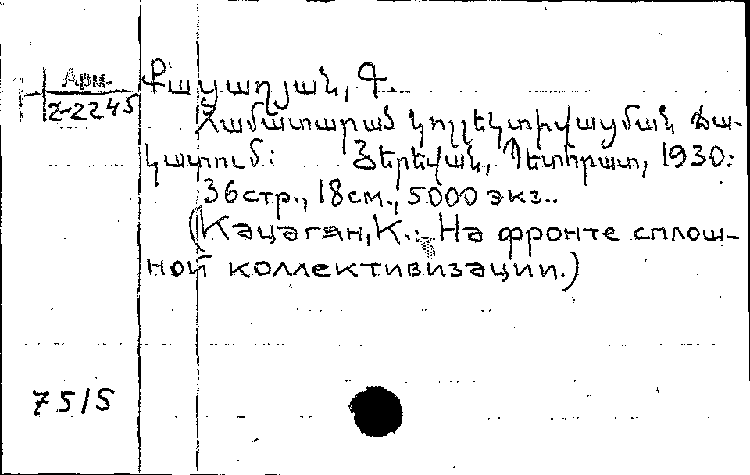 Арм.
2-2245
Քացաղյան, Գ.
Համատարած կոլլեկտիվացման ճա-
կատում: Յերեվան, Պետհրատ, 1930:
36стр., 18см., 5000 экз..
(Кацагян, К.. На фронте сплош-
ной коллективизации.)
7515